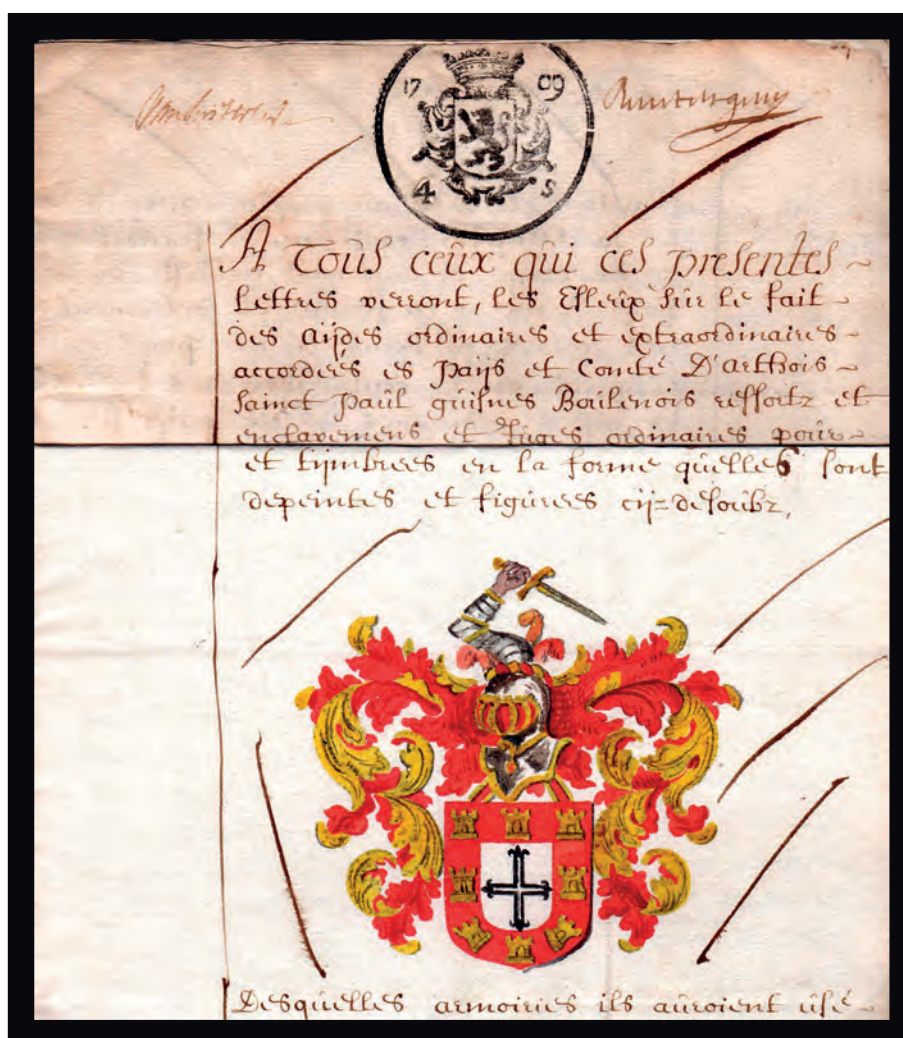 17 09
4 S
A Tous ceux qui ces presentes
Lettres verront, les Esleux sur le fait
des aijdes ordinaires et extraordinaires
accordées es Païjs et Comté D'arthois
sainct Paul guisnes Boulenois ressortz et
enclavemens et Juges ordinaires pour
et tijmbrees en la forme quelles sont
depeintes et figurees cij=desoubz,
Desquelles armoiries ils auroient usé